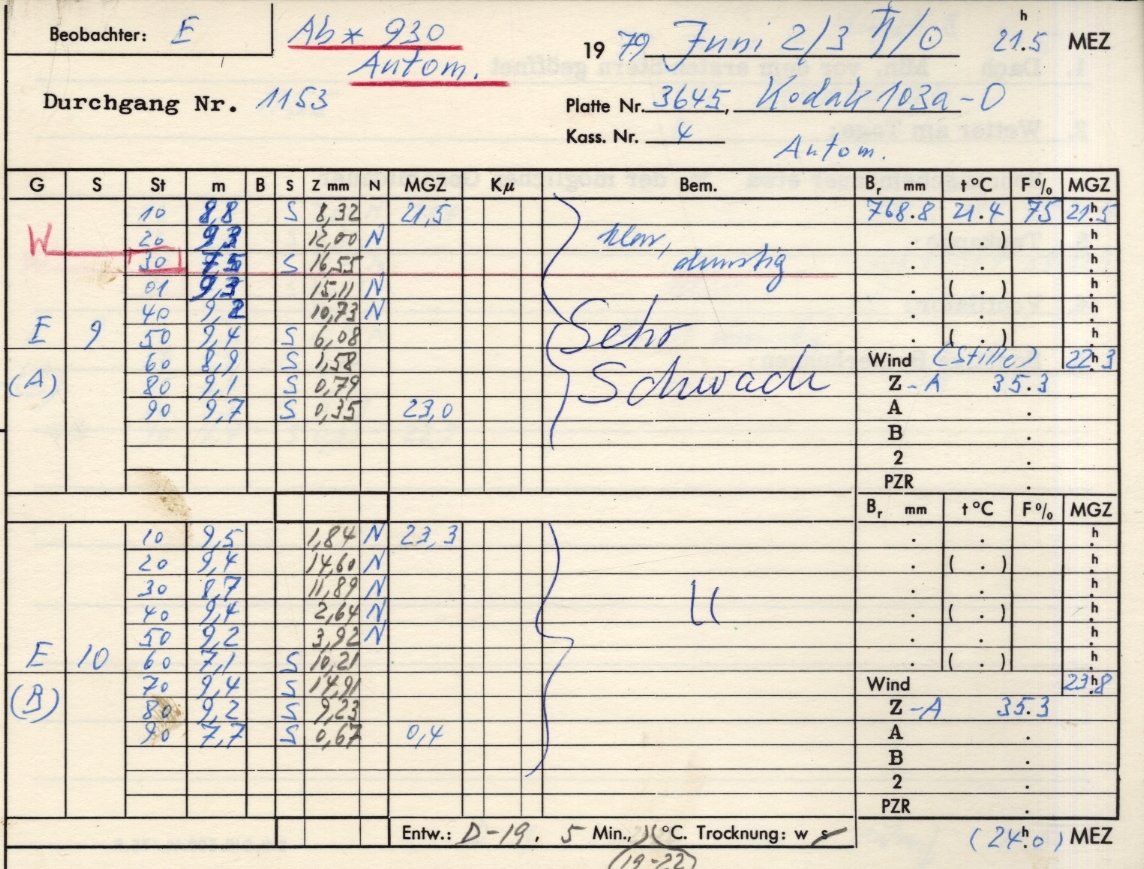 Beobachter: E Ab * 930 19 79 Juni 2/3 ♄/☉ 21.5 h MEZ
Antom.
Durchgang Nr. 1153 Platte Nr. 3645, Kodak 103a-O
Kass. Nr. 4 Antom.
G S St m B S Z mm N MGZ Kμ Bem. Br mm t °C F % MGZ
10 8,8 S 8,32 21,5 768.8 21.4 75 21h.5
20 9,3 12,00 N klar, . ( . ) h
W 30 7,5 S 16,55 dunstig . . h
01 9,3 15,11 N . ( . ) h
40 9,2 10,73 N . . h
E 9 50 9,4 S 6,08 Sehr . ( . ) h
60 8,9 S 1,58 Schwach Wind (Stille) 22h.3
(A) 80 9,1 S 0,79 Z -A 35.3
90 9,7 S 0,35 23,0 A .
B .
2 .
PZR .
Br mm t °C F % MGZ
10 9,5 1,84 N 23,3 . . h
20 9,4 14,60 N . ( . ) h
30 8,7 11,89 N . . h
40 9,4 2,64 N . ( . ) h
50 9,2 3,92 N . . h
E 10 60 7,1 S 10,21 . ( . ) h
70 9,4 S 14,91 Wind 23h.8
(B) 80 9,2 S 9,23 Z -A 35.3
90 7,7 S 0,67 0,4 A .
B .
2 .
PZR .
Entw.: D-19. 5 Min., °C. Trocknung: w s (24h.0) MEZ
(19-22)